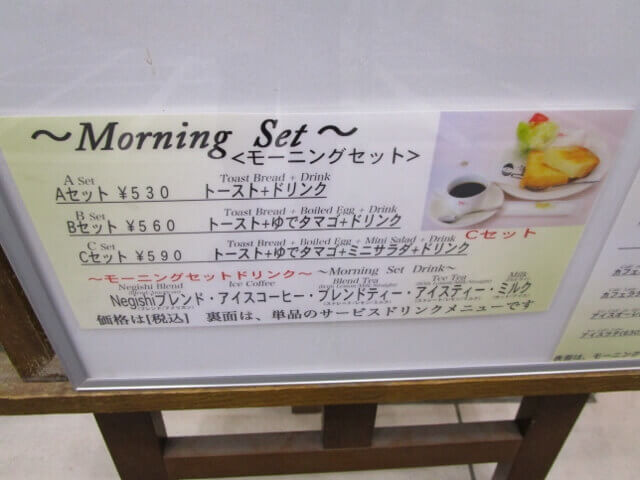 ～Morning Set～
<モーニングセット>
A Set Toast Bread + Drink
Aセット ￥530 トースト+ドリンク
B Set Toast Bread + Boiled Egg + Drink
Bセット ￥560 トースト+ゆでタマゴ+ドリンク
C Set Toast Bread + Boiled Egg + Mini Salad + Drink
Cセット ￥590 トースト+ゆでタマゴ+ミニサラダ+ドリンク
Cセット
～モーニングセットドリンク～ ～Morning Set Drink～
Negishi Blend Ice Coffee Blend Tea Milk
Negishiブレンド・アイスコーヒー・ブレンドティー・アイスティー・ミルク
価格は[税込] 裏面は、単品のサービスドリンクメニューです